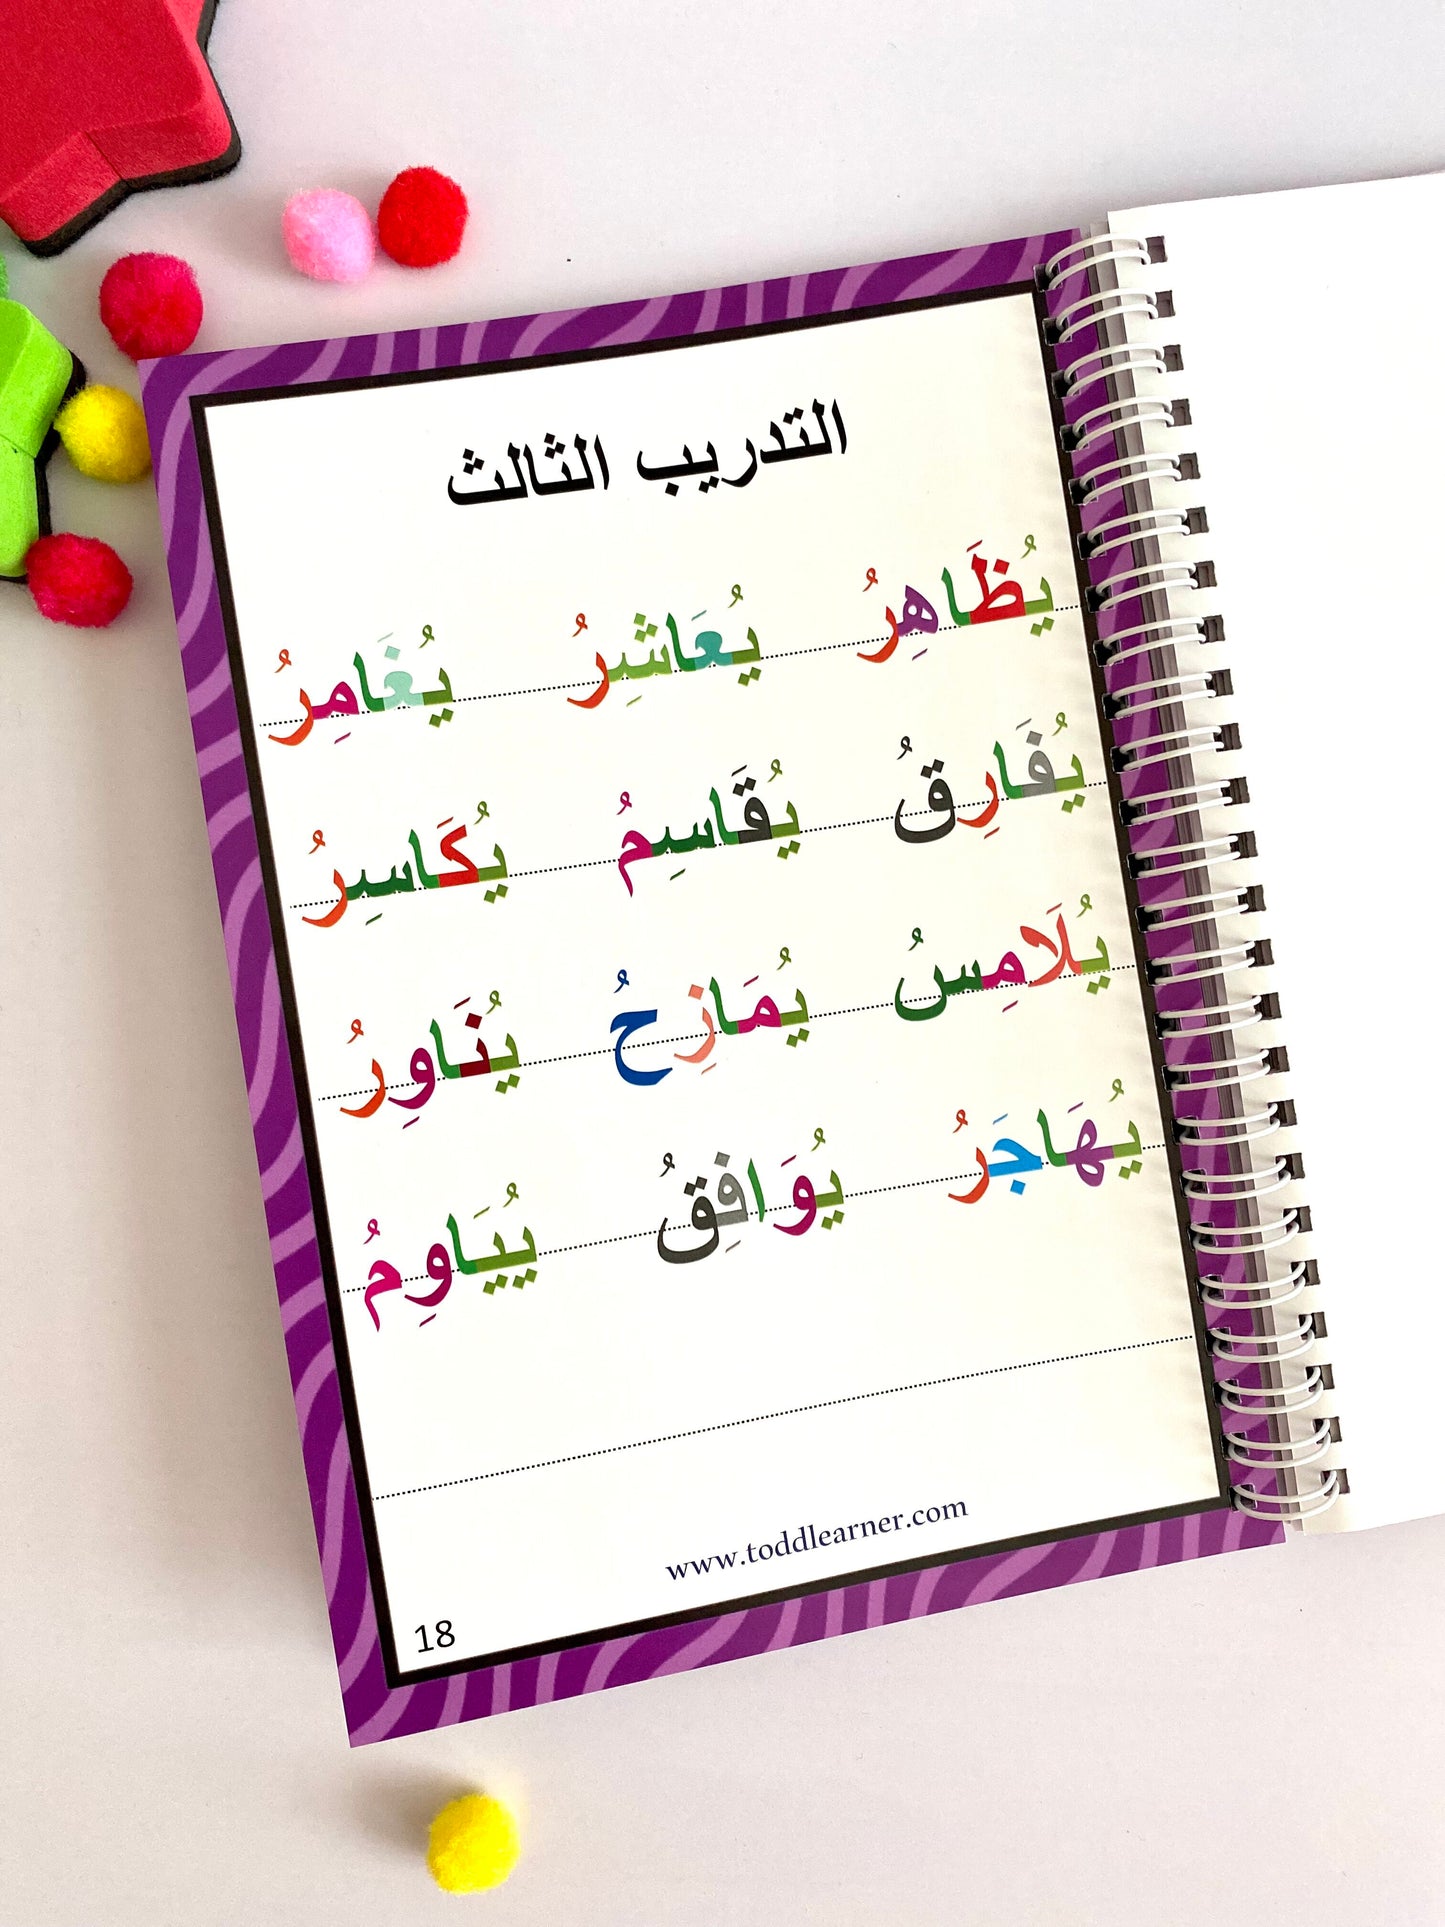 التدريب الثالث
يُظَاهِرُ يُعَاشِرُ يُغَامِرُ
يُفَارِقُ يُقَاسِمُ يُكَاسِرُ
يُلَامِسُ يُمَازِحُ يُنَاوِرُ
يُهَاجَرُ يُوَافِقُ يُيَاوِمُ
www.toddlearner.com
18